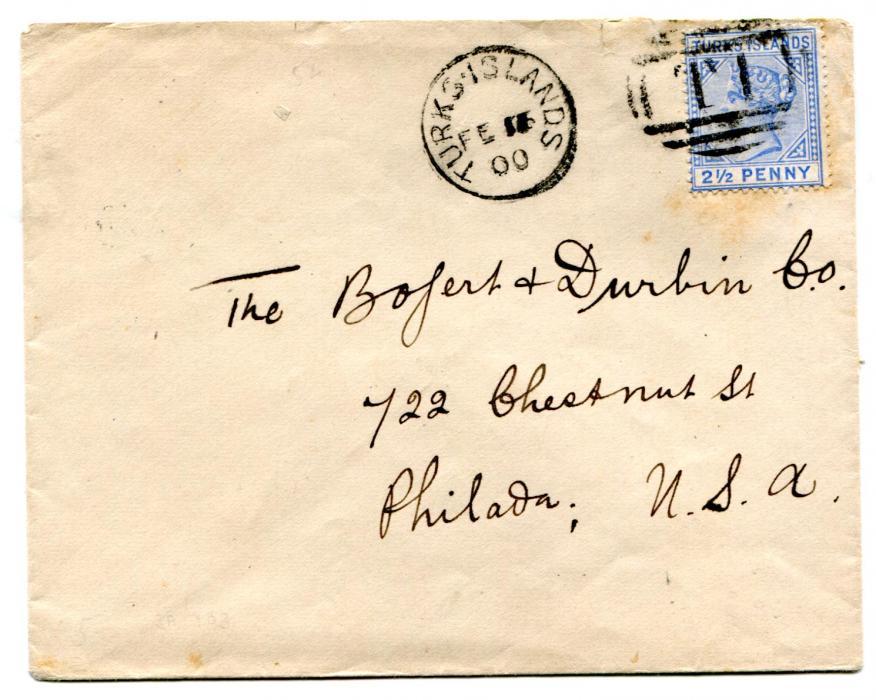 TURKS ISLANDS
FE
00
T1
TURKS ISLANDS
2½ PENNY
The Bogert & Durbin Co.
722 Chestnut St
Philada; U.S.A.